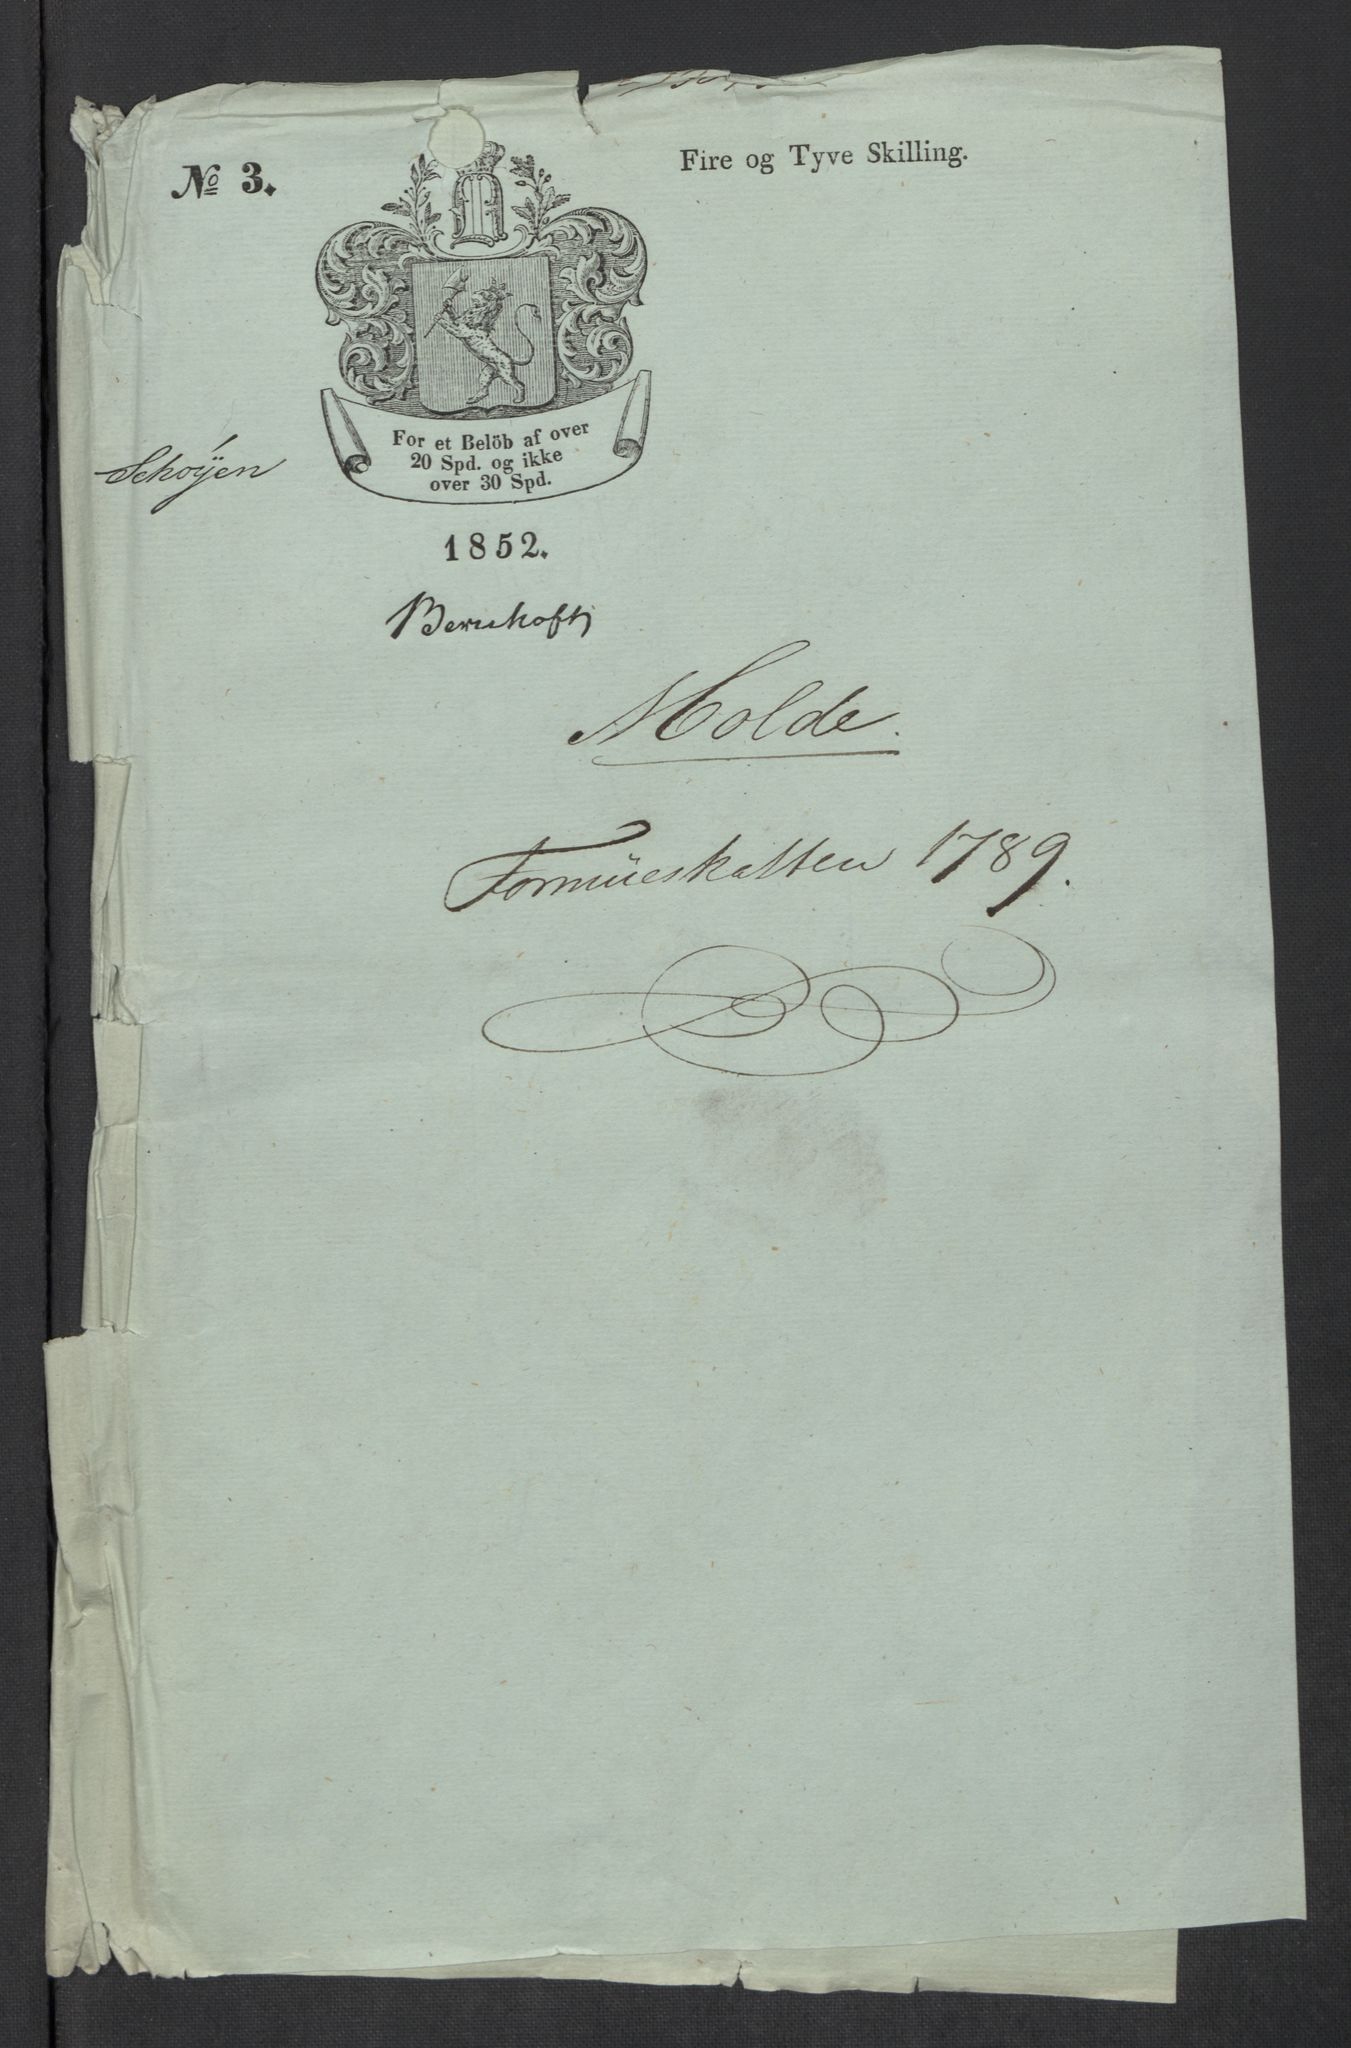 No 3.
Fire og Tyve Skilling.
For et Belöb af over
20 Spd. og ikke
over 30 Spd.
Schøÿen
1852.
Bernhoft
Molde.
Formüeskatten 1789.